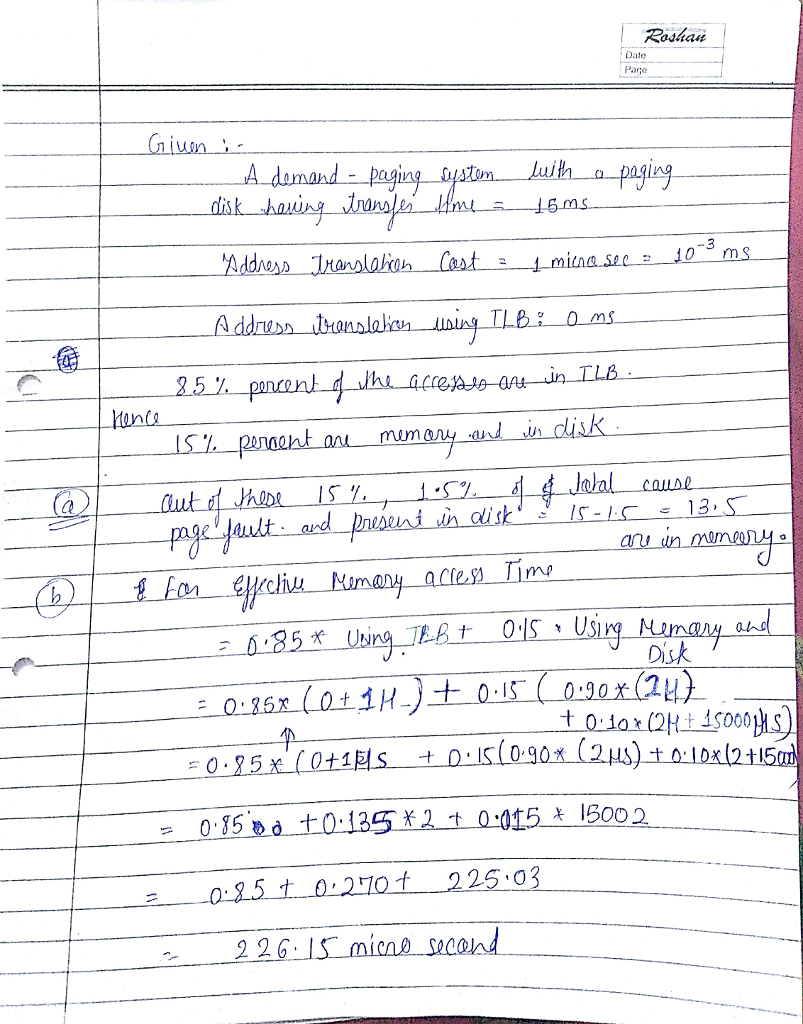 Roshan
Date
Page
Given :-
A demand - paging system with a paging
disk having transfer time = 15 ms
Address Translation Cost = 1 micro sec = 10⁻³ ms
Address translation using TLB : 0 ms
85 % percent of the accesses are in TLB.
Hence
15 % percent are memory and in disk.
(a) Out of these 15 %, 1.5 % of total cause
page fault. and present in disk = 15 - 1.5 = 13.5
are in memeory.
(b) For Effective Memory access Time
= 0.85 * Using TLB + 0.15 * Using Memory and
Disk
= 0.85 * (0 + 1μ) + 0.15 ( 0.90 * (2μ)
+ 0.10 * (2μ + 15000 μs)
= 0.85 * (0+1 μs + 0.15 (0.90 * (2 μs) + 0.10 * (2+15000
= 0.85 + 0.135 * 2 + 0.015 * 15002
= 0.85 + 0.270 + 225.03
= 226.15 micro second